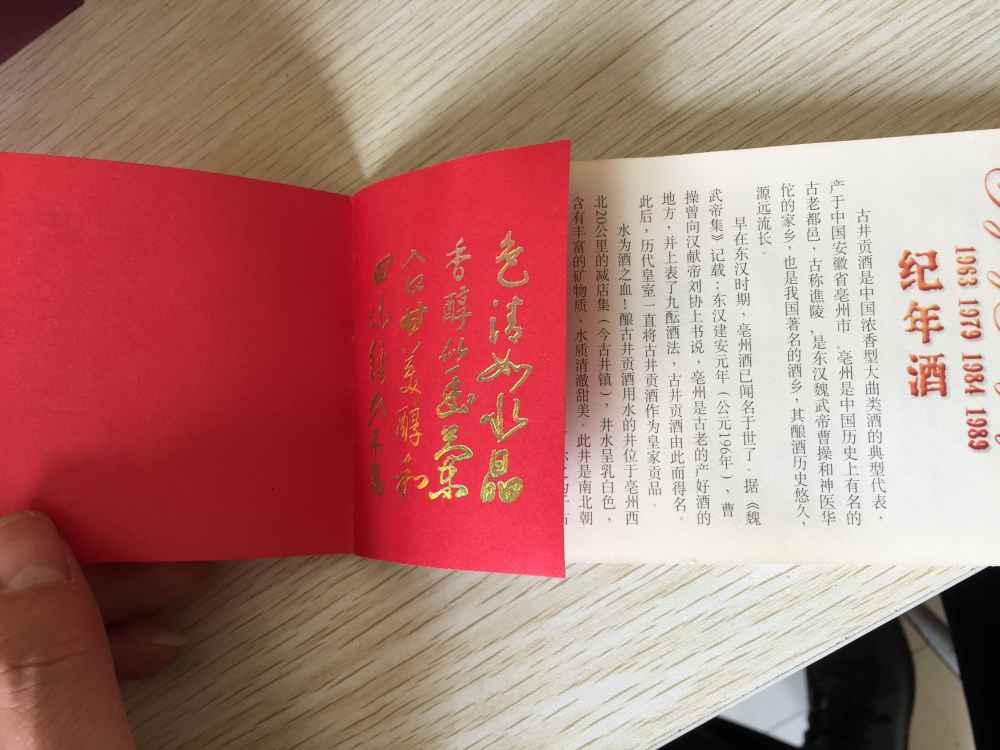 1963 1979 1984 1989
纪年酒
古井贡酒是中国浓香型大曲类酒的典型代表，
产于中国安徽省亳州市。亳州是中国历史上有名的
古老都邑，古称谯陵，是东汉魏武帝曹操和神医华
佗的家乡，也是我国著名的酒乡，其酿酒历史悠久，
源远流长。
早在东汉时期，亳州酒已闻名于世了。据《魏
武帝集》记载：东汉建安元年（公元196年），曹
操曾向汉献帝刘协上书说，亳州是古老的产好酒的
地方，并上表了九酝酒法，古井贡酒由此而得名。
此后，历代皇室一直将古井贡酒作为皇家贡品。
水为酒之血！酿古井贡酒用水的井位于亳州西
北20公里的减店集（今古井镇），井水呈乳白色，
含有丰富的矿物质，水质清澈甜美。此井是南北朝
色清如水晶
香醇似幽兰
入口甘美醇和
回味经久不息